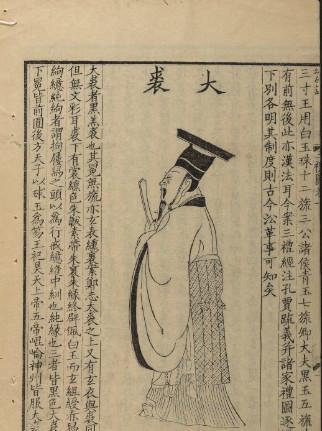 三寸王用白玉珠十二旒三公諸侯青玉七旒卿大夫黑玉五旒
有前無後此亦漢法耳今案三禮經注孔賈疏義并諸家禮圖逐
下別各明其制度則古今㳂革事可知矣
大裘
大裘者黑羔裘也其冕無旒亦玄表纁裏案鄭志大裘之上又有玄衣與裘同
但無文彩耳裘下有裳纁色朱韍素帶朱裏朱緣終辟佩白玉而玄組綬赤舄
絇繶純絇者謂拘屨舄之頭以為行戒繶縫中紃也純緣也三者皆黑色大裘
下冕皆前圓後方天子以球玉為笏王祀昊天上帝五帝崐崘神州皆服大裘